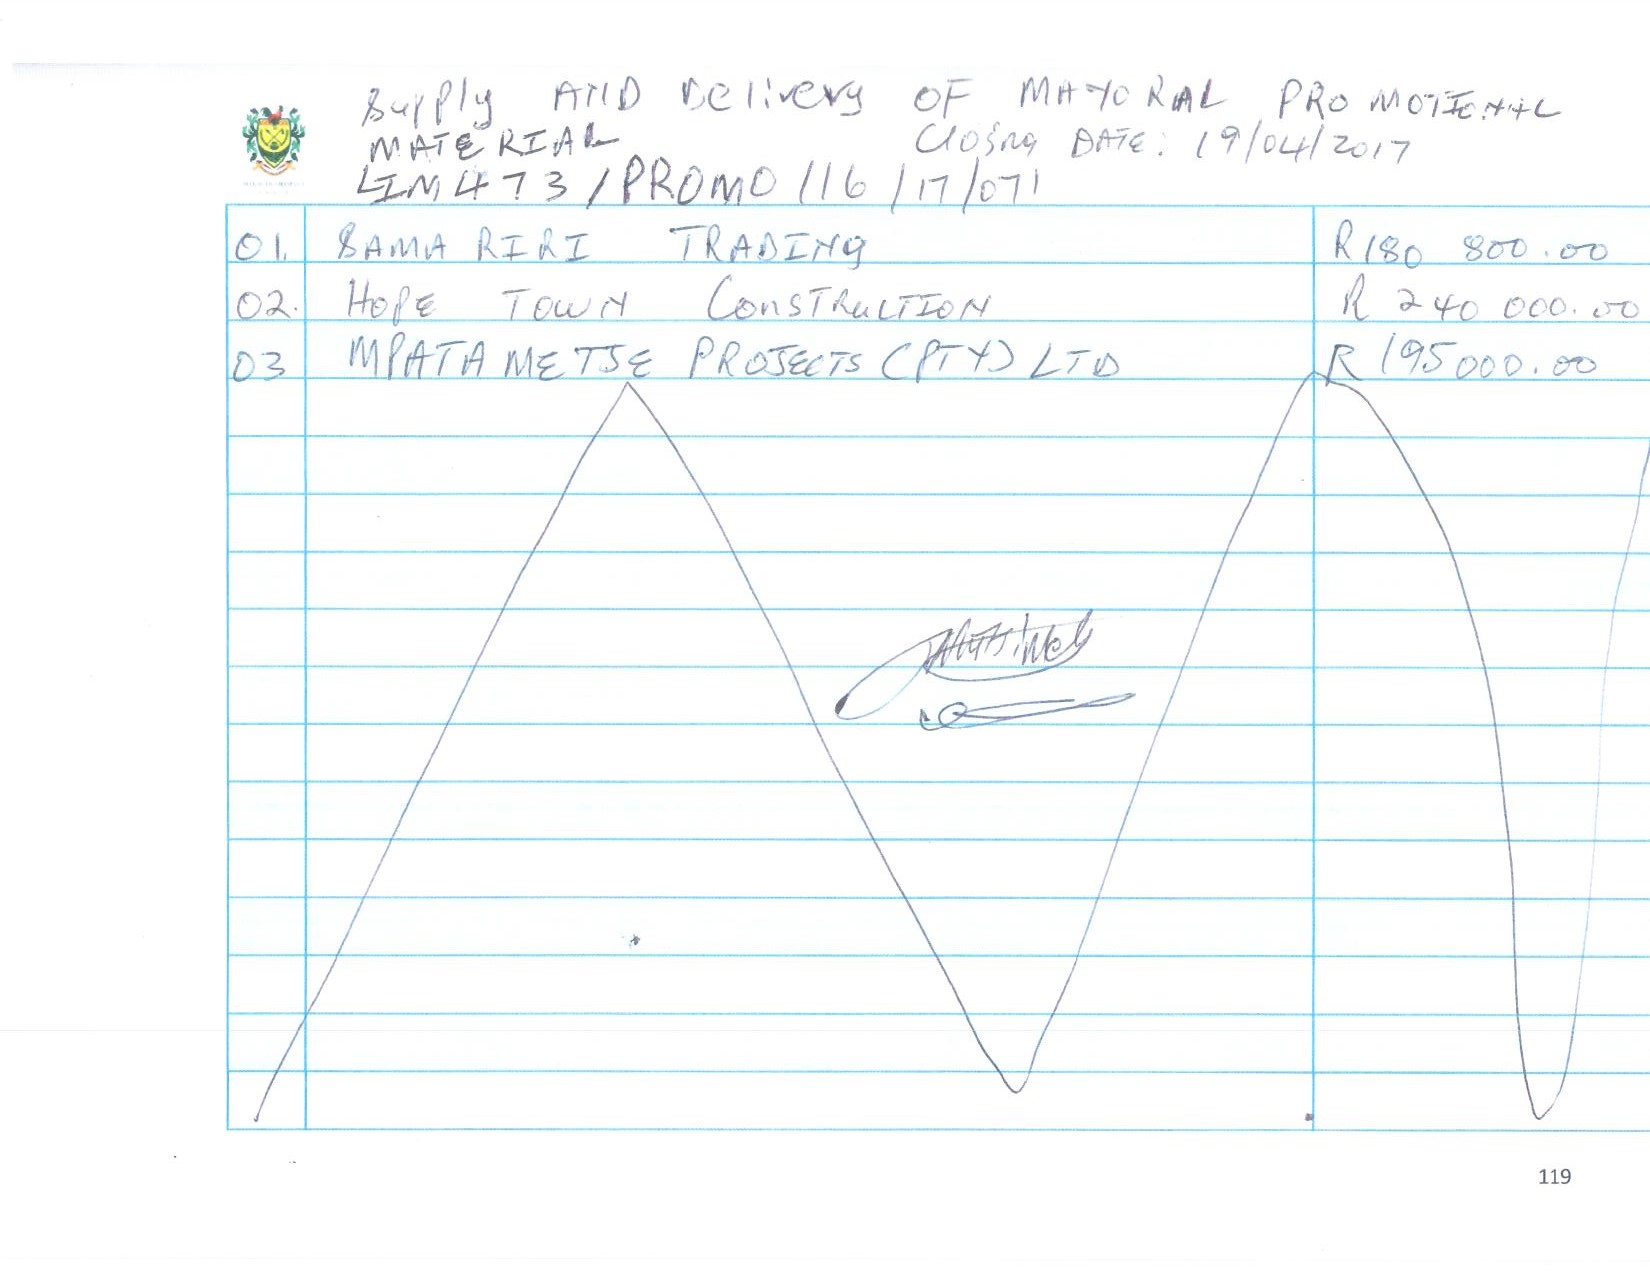 Supply AND Delivery OF MAYORAL PROMOTIONAL
MATERIAL Closing DATE: 19/04/2017
LIM473/PROMO/16/17/071
01. SAMA RIRI TRADING R180 800.00
02. HOPE TOWN CONSTRUCTION R 240 000.00
03 MPATAMETSE PROJECTS (PTY) LTD R 195000.00
119